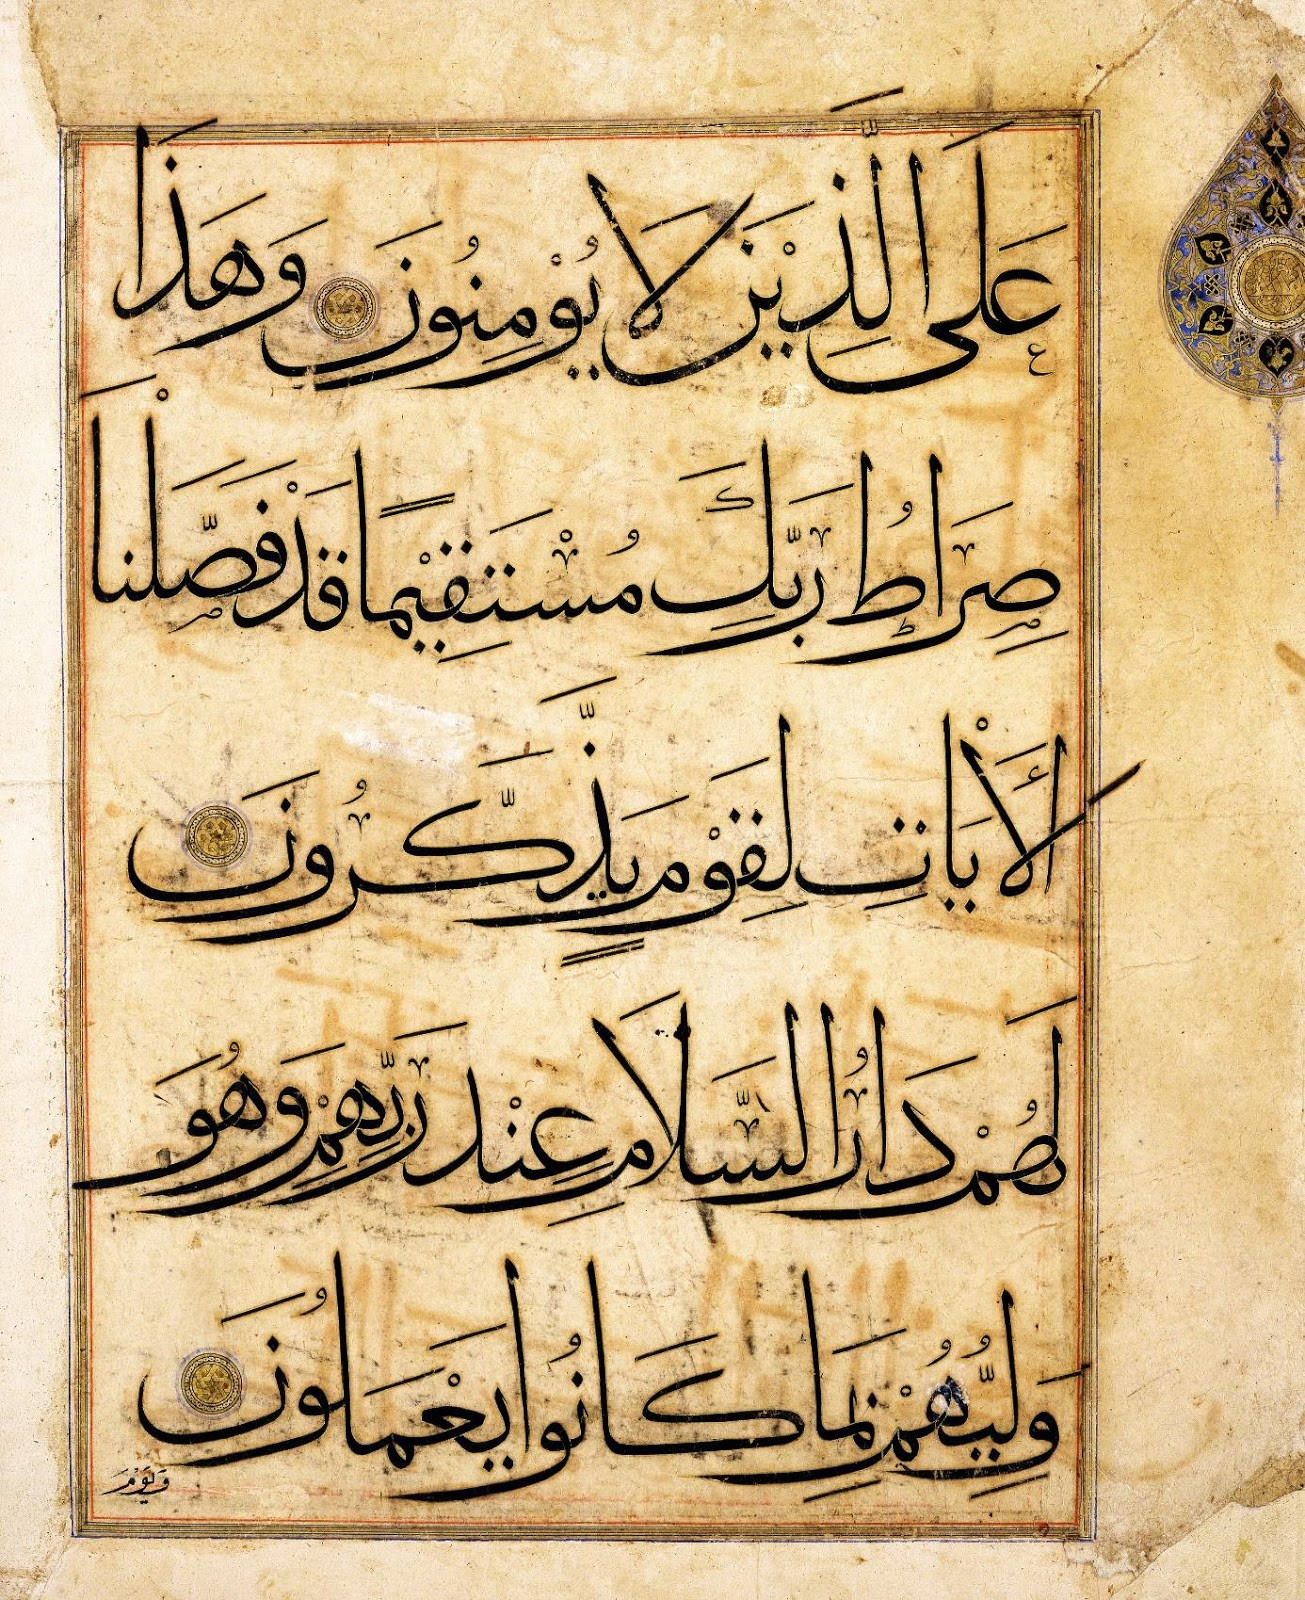 عَلَى الَّذِيْنَ لَا يُوْمِنُونَ وَهَذَا
صِرَاطُ رَبِّكَ مُسْتَقِيْمًا قَدْ فَصَّلْنَا
الْأَيَاتِ لِقَوْمٍ يَذَّكَّرُونَ
لَهُمْ دَارُ السَّلَامِ عِنْدَ رَبِّهِمْ وَهُوَ
وَلِيُّهُمْ بِمَا كَانُوا يَعْمَلُونَ
وَيَوْمَ